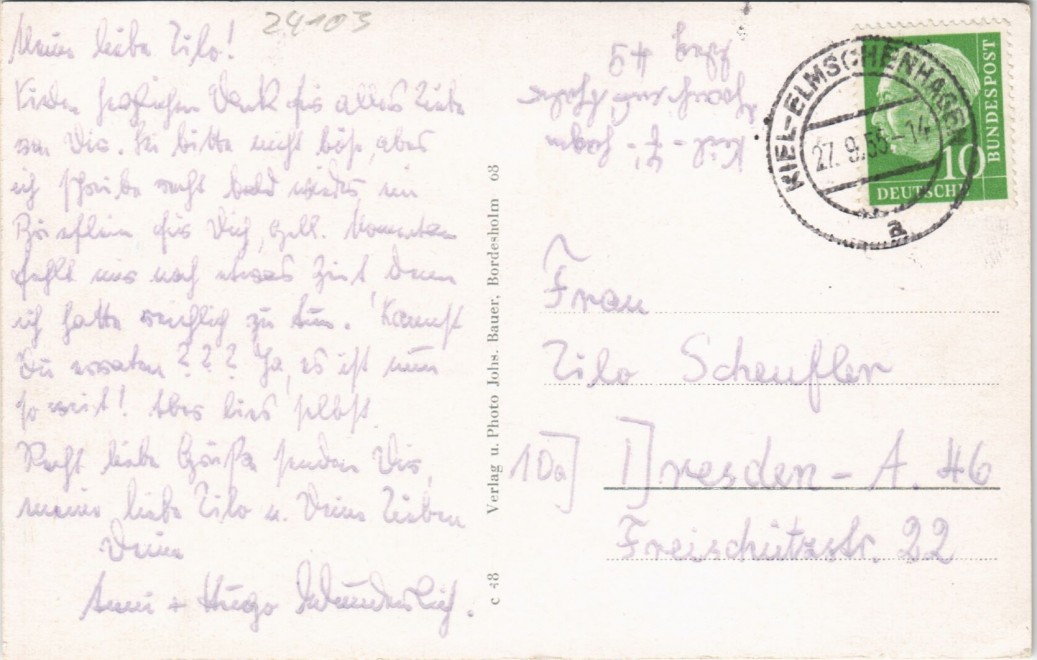 24103
Meine liebe Lilo!
Vielen herzlichen Dank für alles Liebe
von Dir. Sei bitte nicht böse, aber
ich schreibe recht bald wieder ein
Brieflein für Dich, gell. Momentan
fehlt mir noch etwas Zeit, denn
ich hatte reichlich zu tun. Kannst
Du erraten??? Ja, es ist nun
so weit! Aber lies selbst.
Recht liebe Grüße senden Dir,
meine liebe Lilo u. Deine Lieben
Deine
Anni + Hugo Wunderlich.
Verlag u. Photo Johs. Bauer, Bordesholm 68
c 48
Kiel-E. hagen
45
KIEL-ELMSCHENHAGEN
27.9.55.-14
a
DEUTSCHE
BUNDESPOST
10
Frau
Lilo Scheufler
10a Dresden-A. 46
Freischützstr. 22